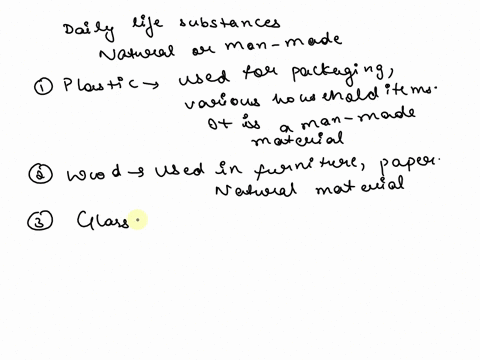 Daily life substances
Natural or man-made
① Plastic → used for packaging,
various household items.
It is a man-made
material
② Wood → Used in furniture, paper.
Natural material
③ Glass